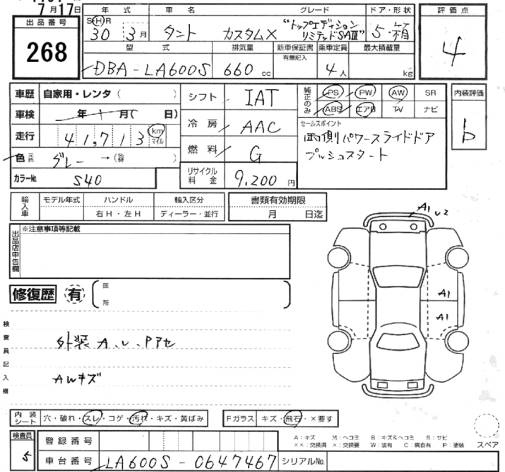 7月17日
出品番号
268
年式 車名 グレード ドア・形状
SⒽR 30年 3月 タント カスタムX "トップエディション リミテッドSAⅢ" 5・箱
型式 排気量 新車保証書 乗車定員 最大積載量
有無記入
DBA-LA600S 660cc 4人 kg
評価点
4
車歴 自家用・レンタ( )
車検 年 月( 日)
走行 41,713 km マイル
色 グレー →(替 )
カラーNo. S40
シフト IAT
冷房 AAC
燃料 G
リサイクル料金 9,200円
純正のみ PS PW AW SR
ABS エアB TV ナビ
セールスポイント
両側パワースライドドア
プッシュスタート
内装評価
b
輸入車 モデル年式 ハンドル 輸入区分 書類有効期限
右H・左H ディーラー・並行 月 日迄
出品店申告欄
※注意事項等記載
修復歴 有 箇所
検査員記入欄
外装 A.U.Pアセ
AWキズ
A1
U2
A1
A1
内装シート 穴・破れ・スレ・コゲ・汚れ・キズ・黄ばみ
Fガラス キズ・飛石・×要す
検査員
登録番号
車台番号 LA600S-0647467 シリアルNo.
A:キズ M:ヘコミ B:キズ&ヘコミ S:サビ
××:交換済 ×:交換要 W:波有 C:腐食有 P:塗装
スペア